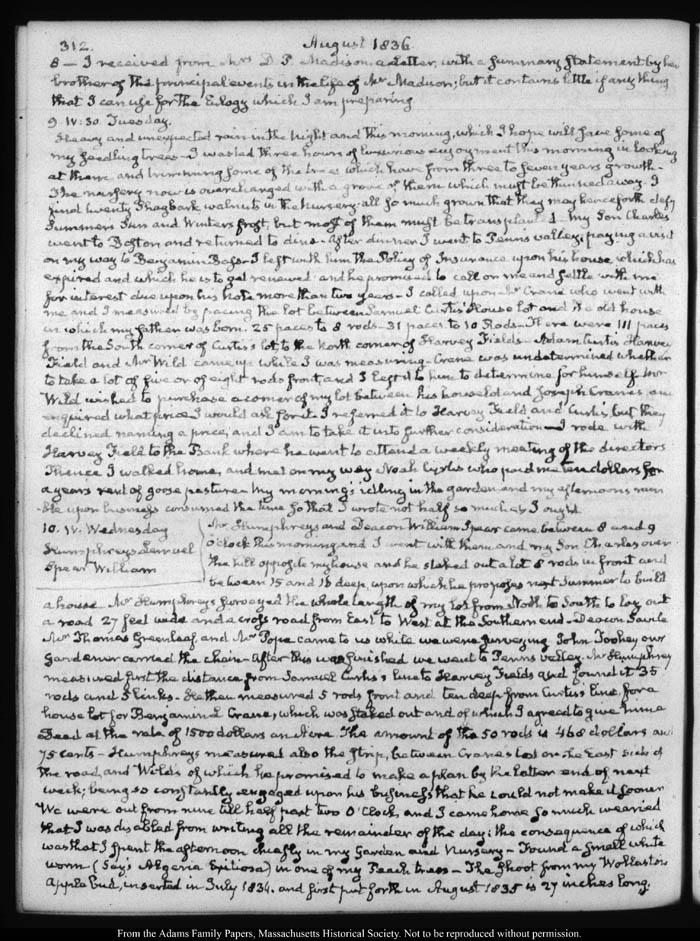 312. August 1836
8 — I received from Mrs D. P. Madison a Letter, with a summary statement by her
brother of the principal events in the life of Mr Madison; but it contains little if any thing
that I can use for the Eulogy which I am preparing
9. IV:30. Tuesday.
Heavy and unexpected rain in the Night and this morning, which I hope will save some of
my seedling trees — I wasted three hours of luxurious enjoyment this morning in looking
at them and trimming some of the trees which have from three to seven years growth —
The nursery now is overcharged with a grove of them which must be thinned away. I
find twenty Shagbark walnuts in the Nursery all so much grown that they may henceforth defy
Summers Sun and Winters frost, but most of them must be transplanted. My Son Charles
went to Boston and returned to dine — After dinner I went to Penn's valley, paying a visit
on my way to Benjamin Bass. I left with him the Policy of Insurance upon his house which has
expired and which he is to get renewed and he promised to call on me and settle with me
for interest due upon his Note more than two years — I called upon Mr Crane who went with
me and I measured by pacing the lot between Samuel Curtis' House lot and the old house
in which my father was born. 25 paces to 8 rods. 31 paces to 10 Rods. There were 111 paces
from the South corner of Curtis's lot to the North corner of Harvey Fields — Adam Curtis Harvey
Field and Mr Wild came up while I was measuring — Crane was undetermined whether
to take a lot of five or of eight rods front and I left it to him to determine for himself. Mr
Wild wished to purchase a corner of my lot between his house lot and Joseph Crane's, and
enquired what price I would ask for it. I referred it to Harvey Field and Curtis, but they
declined naming a price, and I am to take it into further consideration — I rode with
Harvey Field to the Bank where he went to attend a weekly meeting of the directors
Thence I walked home, and met on my way Noah Curtis who paid me ten dollars for
a years rent of goose pasture — My morning's idling in the garden and my afternoons ram
ble upon business consumed the time so that I wrote not half so much as I ought.
10. IV. Wednesday
Humphreys Lemuel
Spear William
Mr Humphreys and Deacon William Spear came between 8 and 9
o'clock this morning and I went with them and my Son Charles over
the hill opposite my house and he staked out a lot 8 rods in front and
between 15 and 16 deep, upon which he proposes next Summer to build
a house. Mr Humphreys surveyed the whole length of my lot from North to South to lay out
a road 27 feet wide and a cross road from East to West at the Southern end — Deacon Savile
Mr Thomas Greenleaf and Mr Pope came to us while we were surveying. John Toohey our
Gardener carried the chain — After this was finished we went to Penns valley. Mr Humphrey
measured first the distance from Samuel Curtis's line to Harvey Fields and found it 35
rods and 5 links. He then measured 5 rods front and ten deep from Curtis's line, for a
house lot for Benjamin L Crane, which was staked out and of which I agreed to give him a
Deed at the rate of 1500 dollars an Acre. The amount of the 50 rods is 468 dollars and
75 cents — Humphreys measured also the strip, between Crane's lot on the East side of
the road and Wild's of which he promised to make a plan by the latter end of next
week; being so constantly engaged upon his business that he could not make it sooner
We were out from nine till half past two O'Clock, and I came home so much wearied
that I was disabled from writing all the remainder of the day; the consequence of which
was that I spent the afternoon chiefly in my Garden and Nursery — Found a small white
worm (Say's Algeria Exitiosa) in one of my Peach trees — The shoot from my Wollaston
Apple bud, inserted in July 1834. and first put forth in August 1835 is 27 inches long.
From the Adams Family Papers, Massachusetts Historical Society. Not to be reproduced without permission.